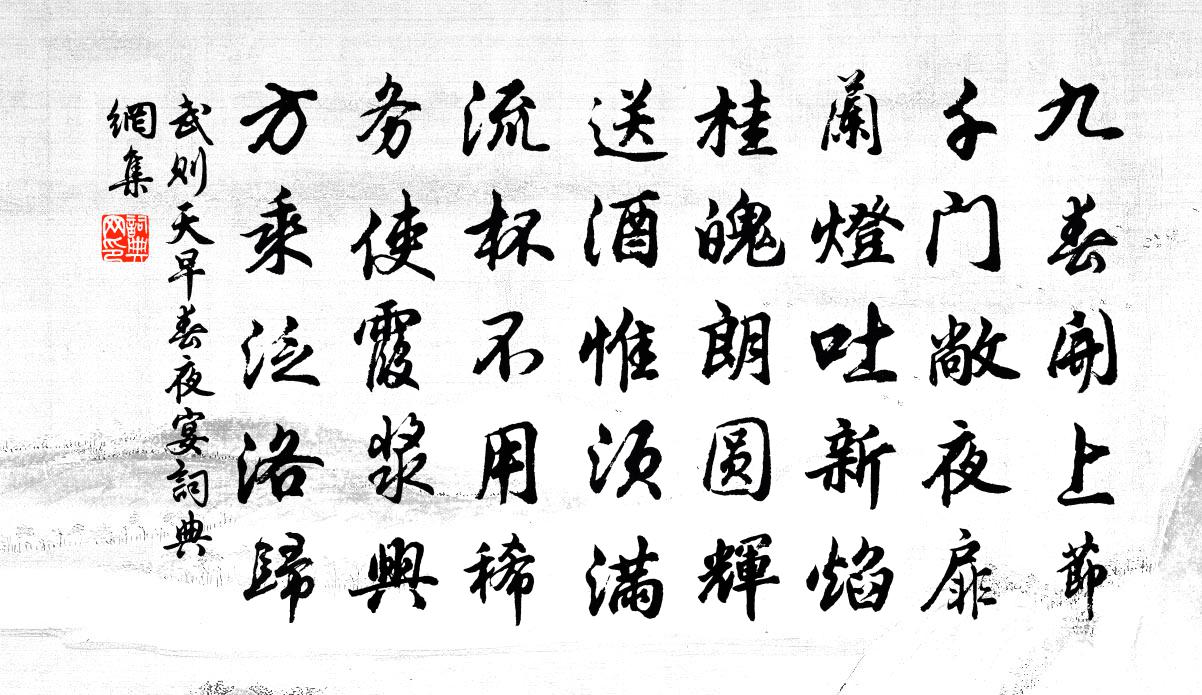 九春開上節
千门敞夜扉
蘭燈吐新焰
桂魄朗圆輝
送酒惟须满
流杯不用稀
务使霞浆興
方乘泛洛歸
武则天早春夜宴詞典
網集
詞典
网印